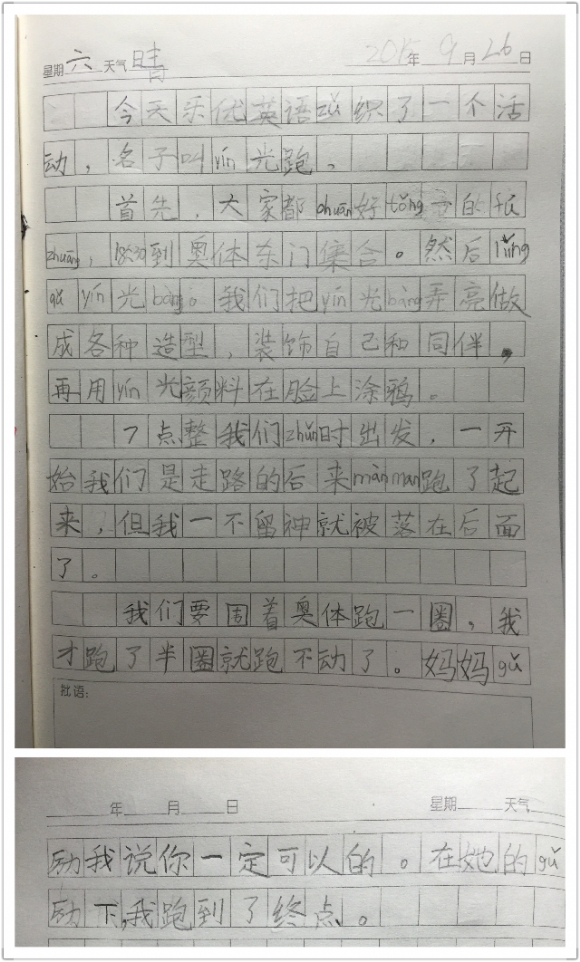 星期六 天气晴 2015年9月26日
今天乐优英语zǔ织了一个活
动，名子叫yín光跑。
首先，大家都chuān好tǒng一的fú
zhuāng，18:30到奥体东门集合。然后lǐng
qǔ yín光bàng。我们把yín光bàng弄亮做
成各种造型，装饰自己和同伴，
再用yín光颜料在脸上涂鸦。
7点整我们zhǔn时出发，一开
始我们是走路的后来mànman跑了起
来，但我一不留神就被落在后面
了。
我们要围着奥体跑一圈，我
才跑了半圈就跑不动了。妈妈gǔ
批语：
年 月 日 星期 天气
励我说你一定可以的。在她的gǔ
励下，我跑到了终点。